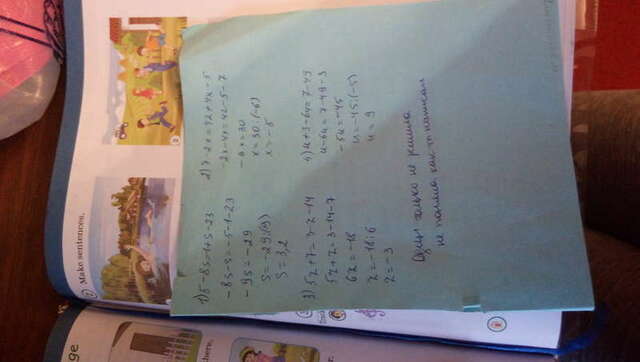 ge
7 Make sentences.
here.
r.
1) 5-8s=1+s-23
-8s-s=-5-1-23
-9s=-29
s=-29:(9)
s=3,2
2) 7-2x=42+4x-5
-2x-4x=42-5-7
-6x=30
x=30:(-6)
x=-5
3) 5z+7=3-z-14
5z+z=3-14-7
6z=-18
z=-18:6
z=-3
4) u+3-6u=7-49
u-6u=7-49-3
-5u=-45
u=-45:(-5)
u=9
Один только не решила
не поняла как ты написал